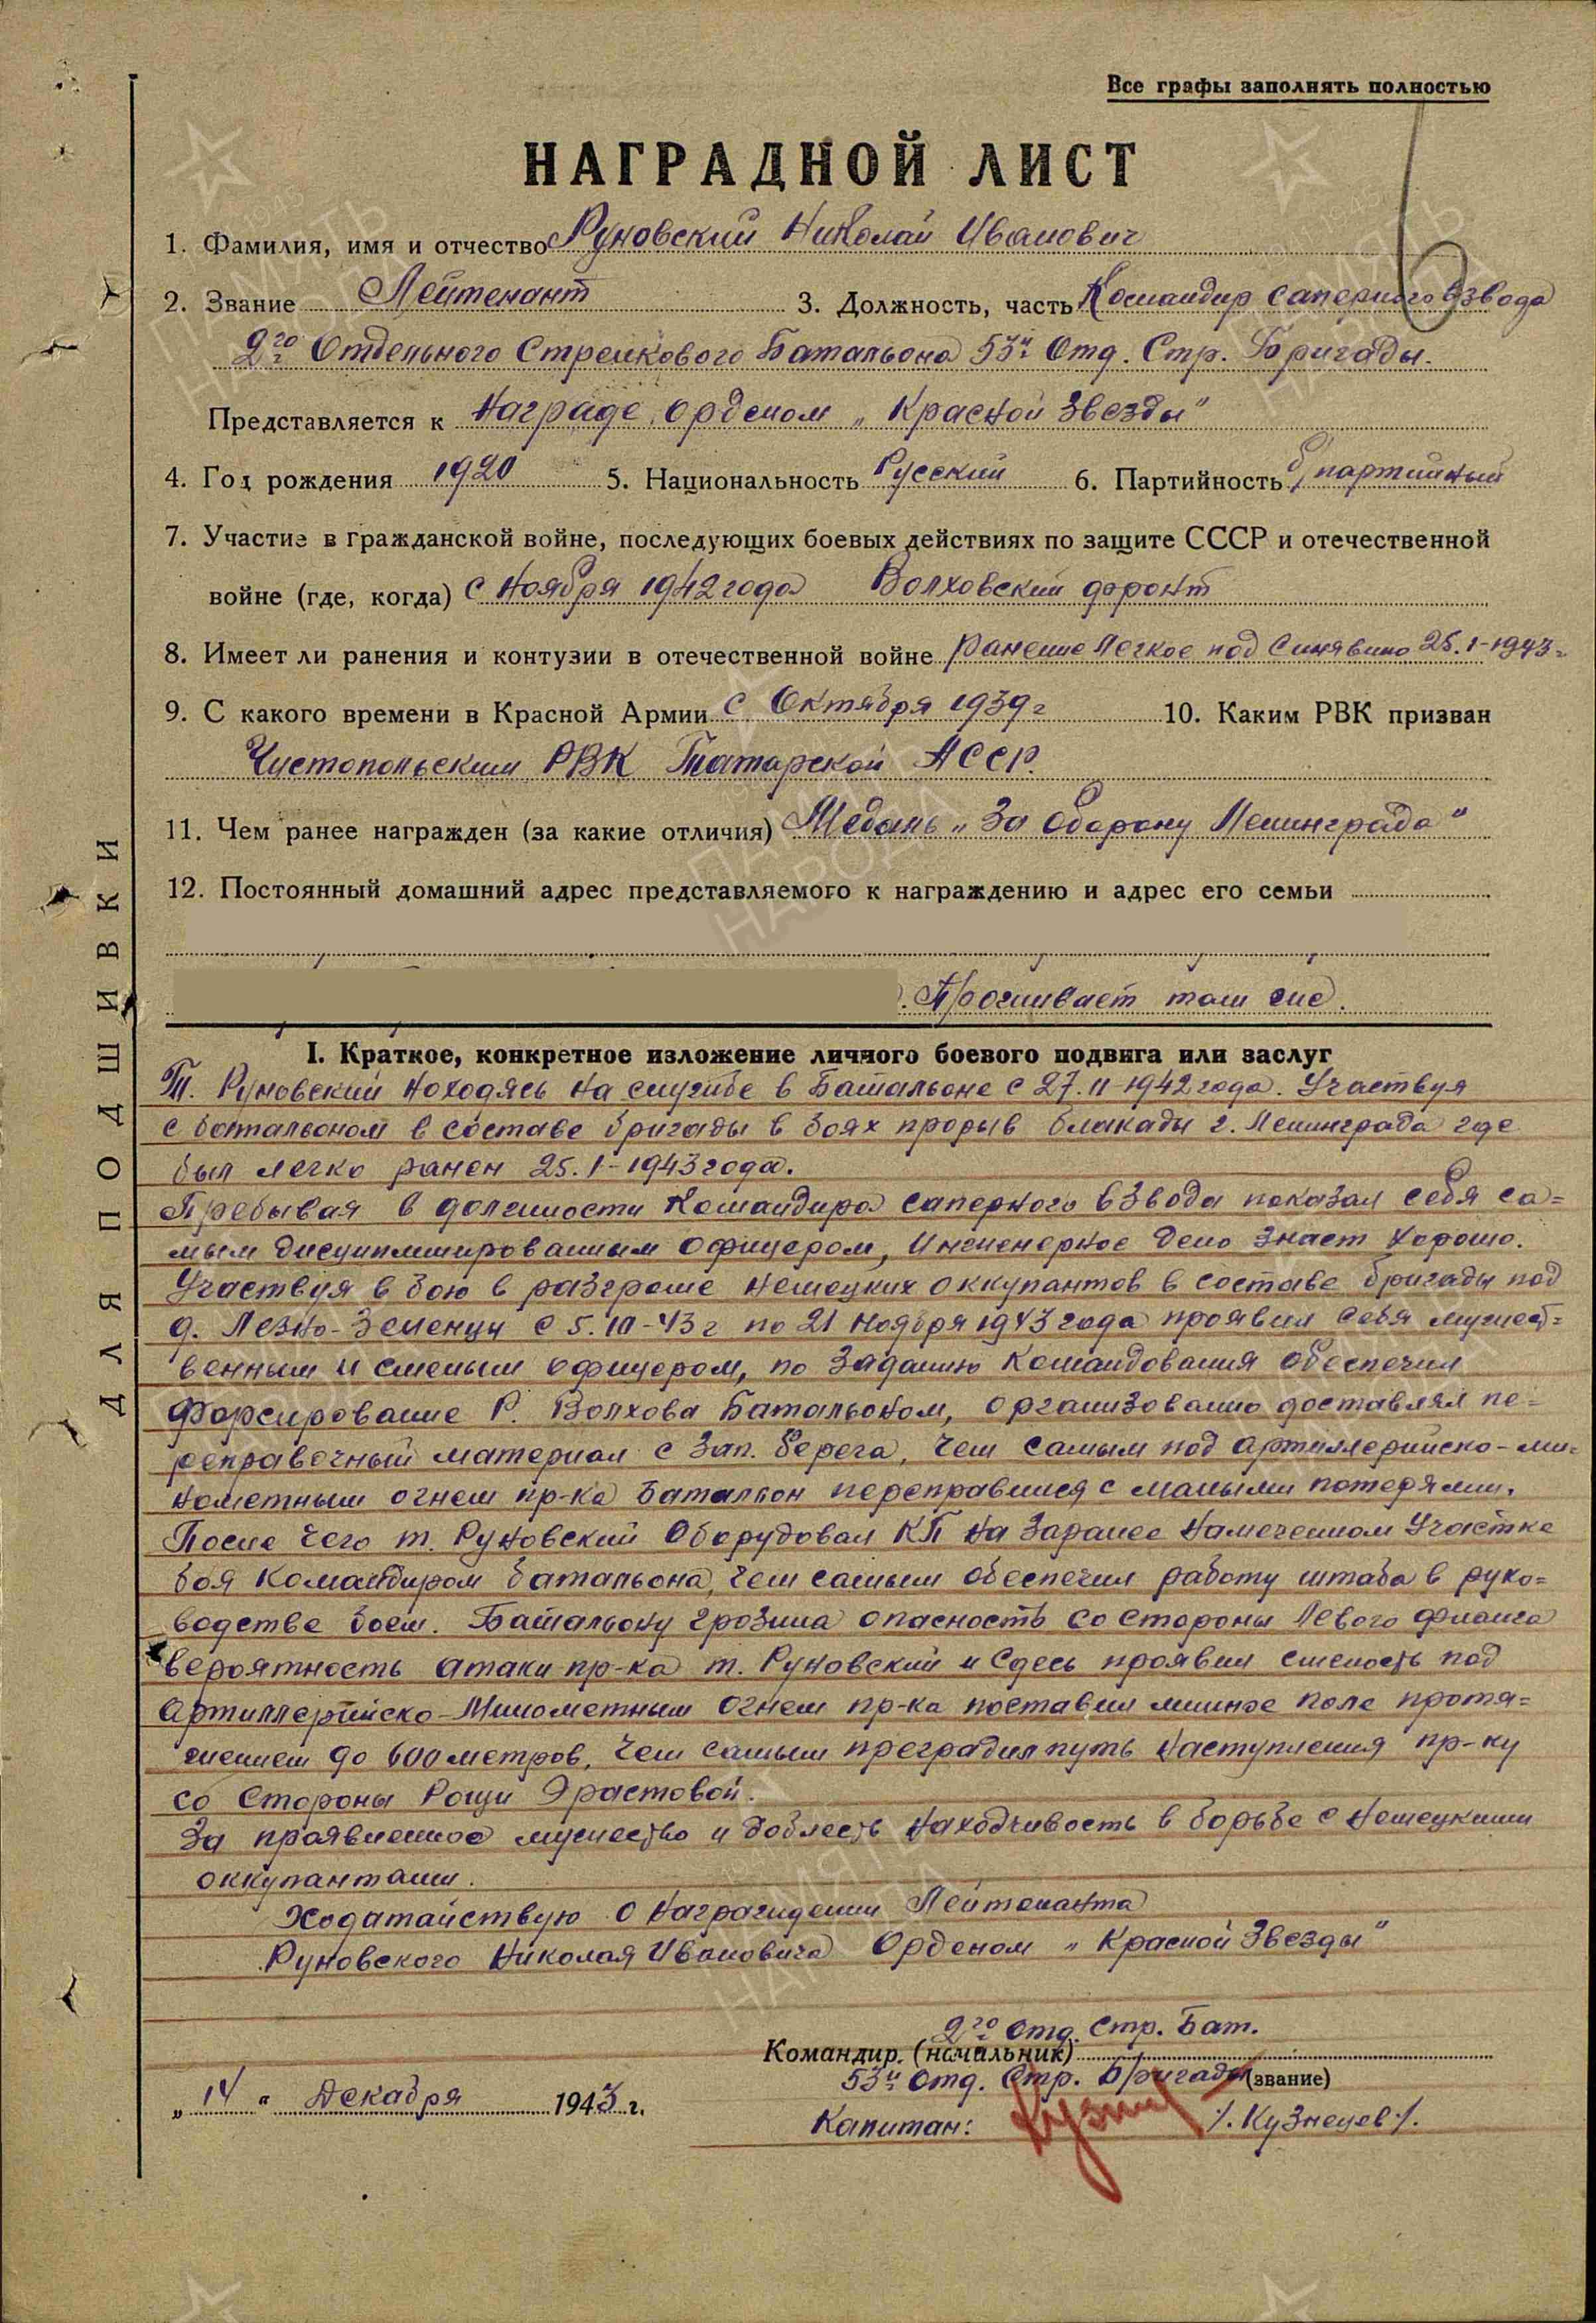 Все графы заполнять полностью
НАГРАДНОЙ ЛИСТ
1. Фамилия, имя и отчество Руновский Николай Иванович
2. Звание Лейтенант 3. Должность, часть Командир саперного взвода
2го Отдельного Стрелкового Батальона 53й Отд. Стр. Бригады.
Представляется к награде орденом „Красной Звезды"
4. Год рождения 1920 5. Национальность Русский 6. Партийность б/партийный
7. Участие в гражданской войне, последующих боевых действиях по защите СССР и отечественной
войне (где, когда) с Ноября 1942 года Волховский фронт
8. Имеет ли ранения и контузии в отечественной войне ранение легкое под Синявино 25.1-1943г
9. С какого времени в Красной Армии с Октября 1939г 10. Каким РВК призван
Чистопольским РВК Татарской АССР.
11. Чем ранее награжден (за какие отличия) Медаль „За Оборону Ленинграда"
12. Постоянный домашний адрес представляемого к награждению и адрес его семьи
. Проживает там же.
I. Краткое, конкретное изложение личного боевого подвига или заслуг
Т. Руновский находясь на службе в Батальоне с 27.11-1942 года. Участвуя
с батальоном в составе бригады в боях прорыв блакады г. Ленинграда где
был легко ранен 25.1-1943 года.
Пребывая в должности Командира саперного взвода показал себя са=
мым дисциплинированным офицером, Инженерное дело знает хорошо.
Участвуя в бою в разгроме немецких оккупантов в составе бригады под
д. Лезно-Зеленцы с 5. -43г по 21 ноября 1943 года проявил себя мужест=
венным и смелым офицером, по заданию Командования обеспечил
Форсирование Р. Волхова Батальоном, организованно доставлял пе=
реправочный материал с зап. берега, чем самым под артиллерийско-ми=
нометным огнем пр-ка батальон переправился с малыми потерями.
После чего т. Руновский Оборудовал КП на заранее намеченном Участке
боя командиром батальона, чем самым обеспечил работу штаба в руко=
водстве боем. Батальону грозила опасность со стороны левого фланга
вероятность атаки пр-ка т. Руновский и сдесь проявил смелость под
Артиллерийско-Минометным огнем пр-ка поставил минное поле протя=
жением до 600 метров, чем самым преградил путь наступления пр-ку
со стороны Рощи Эрастовой.
За проявленное мужество и доблесть находчивость в борьбе с немецкими
оккупантами.
Ходатайствую о награждении Лейтенанта
Руновского Николая Ивановича Орденом „Красной Звезды"
2го Отд. Стр. Бат.
Командир (начальник)
53й Отд. Стр. Бригады (звание)
„14" Декабря 1943 г.
Капитан: /. Кузнецов /.
ДЛЯ ПОДШИВКИ
ПАМЯТЬ НАРОДА